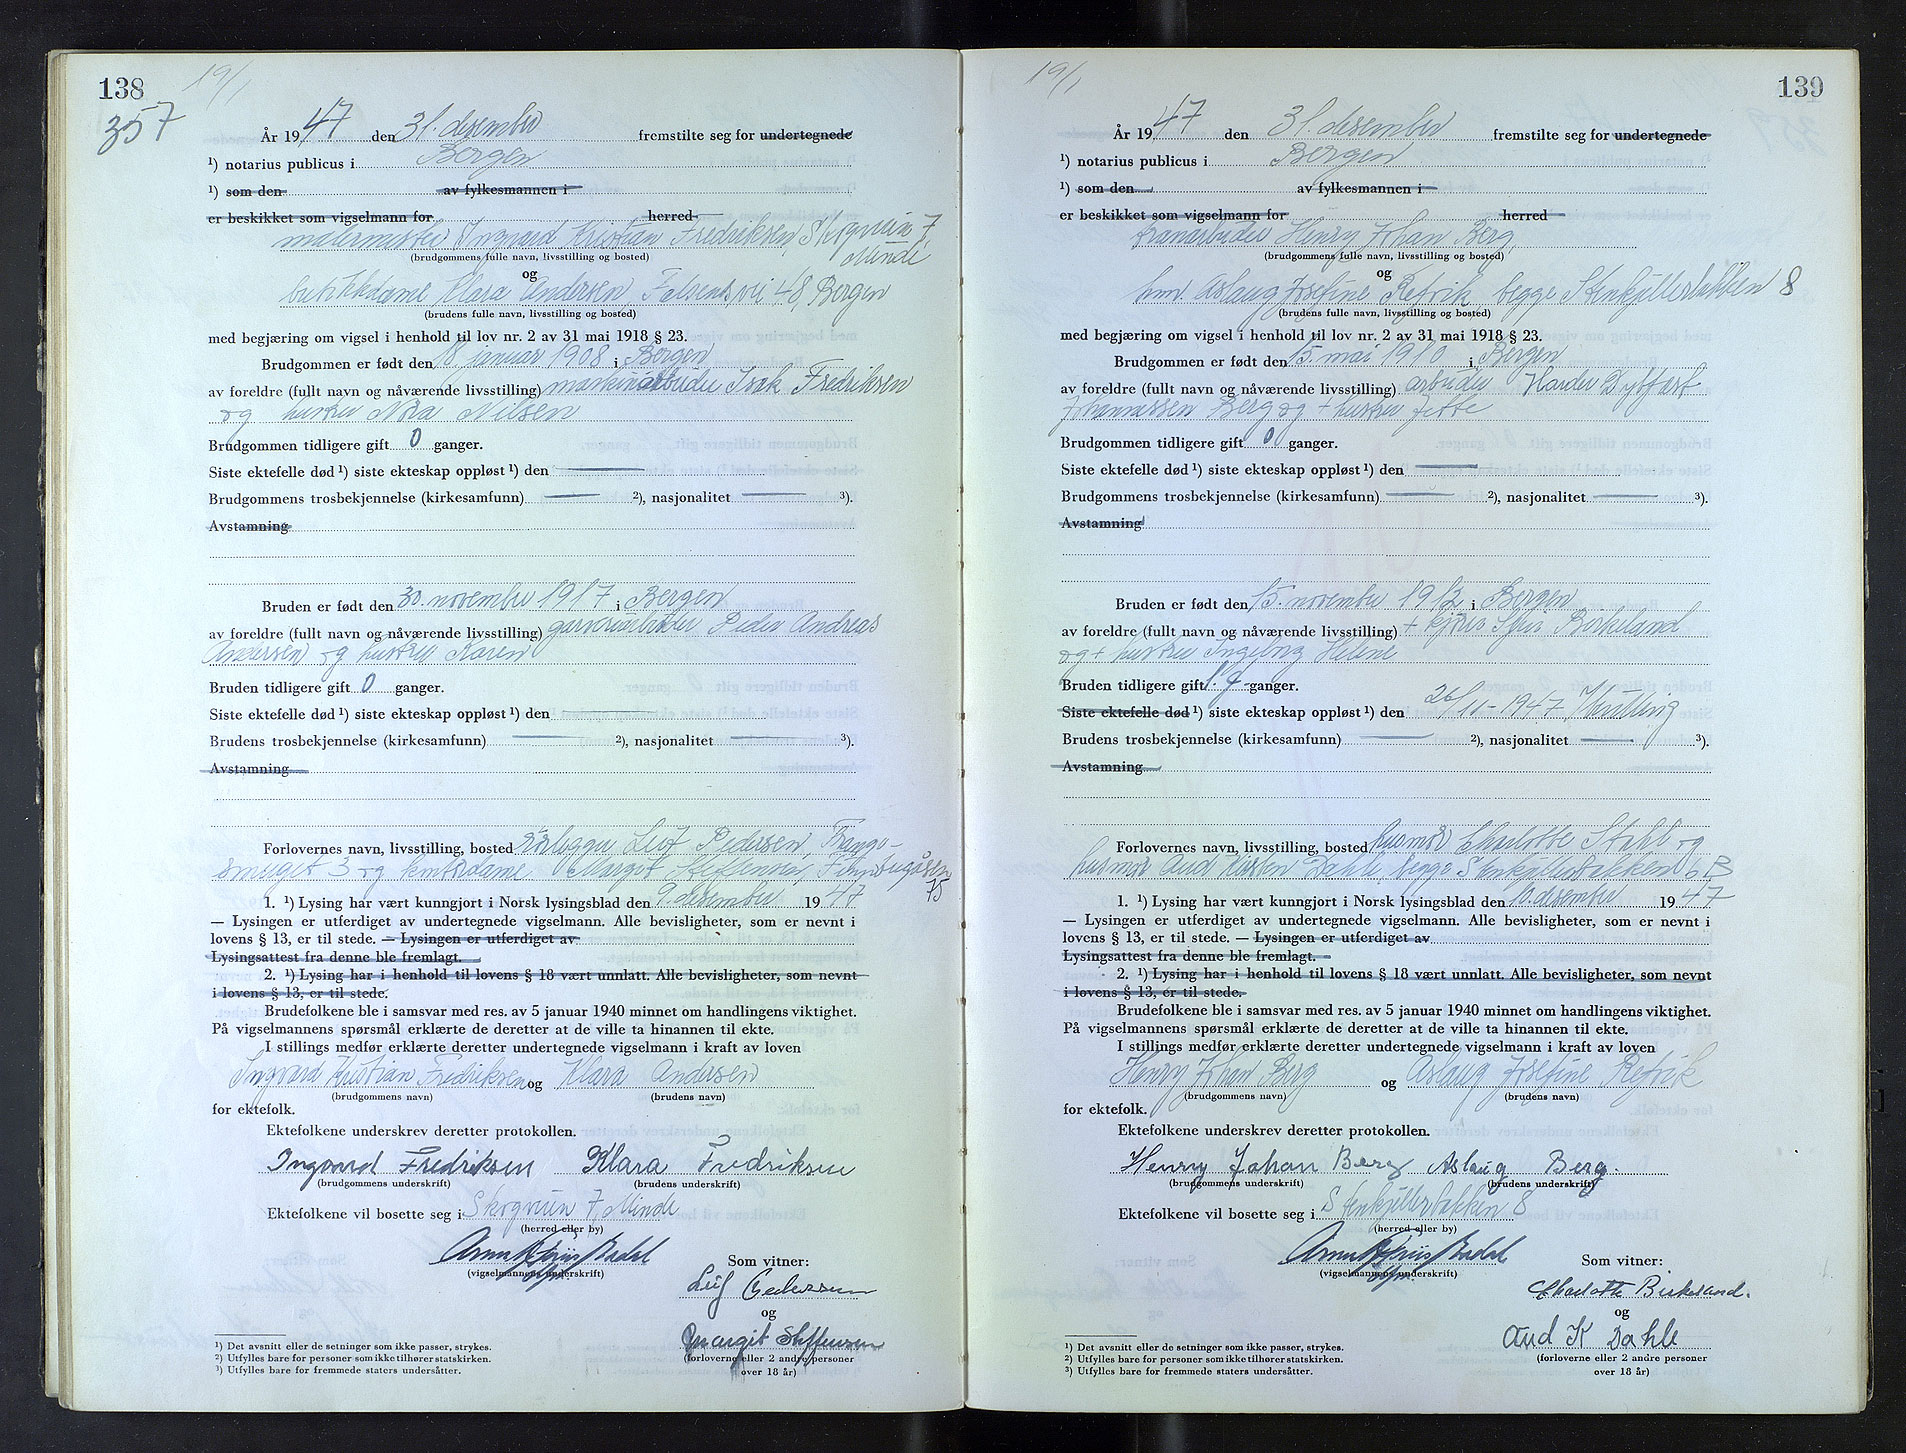 138
19/1
357
År 1947 den 31. desember fremstilte seg for undertegnede
¹) notarius publicus i Bergen
¹) som den av fylkesmannen i
er beskikket som vigselmann for herred
malermester Ingvard Kristian Fredriksen, Skogveien 7,
Minde
(brudgommens fulle navn, livsstilling og bosted)
og
butikkdame Klara Andersen, vei 48, Bergen
(brudens fulle navn, livsstilling og bosted)
med begjæring om vigsel i henhold til lov nr. 2 av 31 mai 1918 § 23.
Brudgommen er født den 18. januar 1908 i Bergen
av foreldre (fullt navn og nåværende livsstilling) maskinarbeider Isak Fredriksen
og hustru Nilsen
Brudgommen tidligere gift 0 ganger.
Siste ektefelle død ¹) siste ekteskap oppløst ¹) den
Brudgommens trosbekjennelse (kirkesamfunn) ²), nasjonalitet ³).
Avstamning
Bruden er født den 30. november 1917 i Bergen
av foreldre (fullt navn og nåværende livsstilling) garveriarbeider Peder Andreas
Andersen og hustru Karen
Bruden tidligere gift 0 ganger.
Siste ektefelle død ¹) siste ekteskap oppløst ¹) den
Brudens trosbekjennelse (kirkesamfunn) ²), nasjonalitet ³).
Avstamning
Forlovernes navn, livsstilling, bosted rørlegger Leif Pedersen,
smuget 3 og kontordame Margot Steffensen,
75
1. ¹) Lysing har vært kunngjort i Norsk lysingsblad den 9. desember 1947
— Lysingen er utferdiget av undertegnede vigselmann. Alle bevisligheter, som er nevnt i
lovens § 13, er til stede. — Lysingen er utferdiget av
Lysingsattest fra denne ble fremlagt.
2. ¹) Lysing har i henhold til lovens § 18 vært unnlatt. Alle bevisligheter, som nevnt
i lovens § 13, er til stede.
Brudefolkene ble i samsvar med res. av 5 januar 1940 minnet om handlingens viktighet.
På vigselmannens spørsmål erklærte de deretter at de ville ta hinannen til ekte.
I stillings medfør erklærte deretter undertegnede vigselmann i kraft av loven
Ingvard Kristian Fredriksen og Klara Andersen
(brudgommens navn) (brudens navn)
for ektefolk.
Ektefolkene underskrev deretter protokollen.
Ingvard Fredriksen Klara Fredriksen
(brudgommens underskrift) (brudens underskrift)
Ektefolkene vil bosette seg i Skogveien 7, Minde
(herred eller by)
(vigselmannens underskrift)
Som vitner:
Leif Pedersen
og
Margit Steffensen
(forloverne eller 2 andre personer
over 18 år)
¹) Det avsnitt eller de setninger som ikke passer, strykes.
²) Utfylles bare for personer som ikke tilhører statskirken.
³) Utfylles bare for fremmede staters undersåtter.
139
19/1
År 1947 den 31. desember fremstilte seg for undertegnede
¹) notarius publicus i Bergen
¹) som den av fylkesmannen i
er beskikket som vigselmann for herred
tranarbeider Henry Johan Berg,
(brudgommens fulle navn, livsstilling og bosted)
og
hm. Aslaug Josefine Refvik, begge Stenkjellerbakken 8
(brudens fulle navn, livsstilling og bosted)
med begjæring om vigsel i henhold til lov nr. 2 av 31 mai 1918 § 23.
Brudgommen er født den 15. mai 1910 i Bergen
av foreldre (fullt navn og nåværende livsstilling) arbeider
Johannessen Berg og + hustru Jette
Brudgommen tidligere gift 0 ganger.
Siste ektefelle død ¹) siste ekteskap oppløst ¹) den
Brudgommens trosbekjennelse (kirkesamfunn) ²), nasjonalitet ³).
Avstamning
Bruden er født den 15. november 1912 i Bergen
av foreldre (fullt navn og nåværende livsstilling) + Birkeland
og + hustru Ingeborg Helene
Bruden tidligere gift 1. g. ganger.
Siste ektefelle død ¹) siste ekteskap oppløst ¹) den 26/11-1947
Brudens trosbekjennelse (kirkesamfunn) ²), nasjonalitet ³).
Avstamning
Forlovernes navn, livsstilling, bosted husmor Charlotte og
husmor Aud Kirsten Dahle, begge Stenkjellerbakken 6B
1. ¹) Lysing har vært kunngjort i Norsk lysingsblad den 10. desember 1947
— Lysingen er utferdiget av undertegnede vigselmann. Alle bevisligheter, som er nevnt i
lovens § 13, er til stede. — Lysingen er utferdiget av
Lysingsattest fra denne ble fremlagt.
2. ¹) Lysing har i henhold til lovens § 18 vært unnlatt. Alle bevisligheter, som nevnt
i lovens § 13, er til stede.
Brudefolkene ble i samsvar med res. av 5 januar 1940 minnet om handlingens viktighet.
På vigselmannens spørsmål erklærte de deretter at de ville ta hinannen til ekte.
I stillings medfør erklærte deretter undertegnede vigselmann i kraft av loven
Henry Johan Berg og Aslaug Josefine Refvik
(brudgommens navn) (brudens navn)
for ektefolk.
Ektefolkene underskrev deretter protokollen.
Henry Johan Berg Aslaug Berg.
(brudgommens underskrift) (brudens underskrift)
Ektefolkene vil bosette seg i Stenkjellerbakken 8
(herred eller by)
(vigselmannens underskrift)
Som vitner:
Charlotte Birkeland.
og
Aud K Dahle
(forloverne eller 2 andre personer
over 18 år)
¹) Det avsnitt eller de setninger som ikke passer, strykes.
²) Utfylles bare for personer som ikke tilhører statskirken.
³) Utfylles bare for fremmede staters undersåtter.